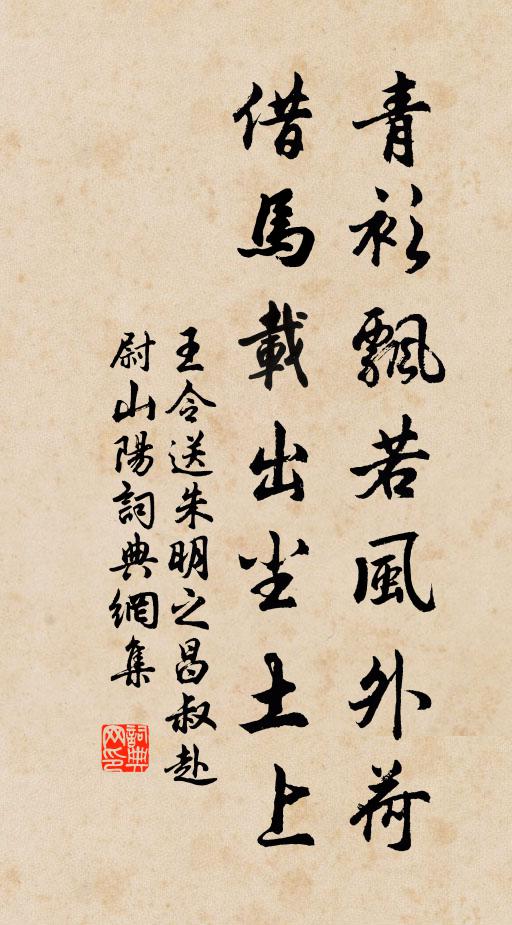 青衫飄若風外荷
借馬載出尘土上
王令送朱明之昌叔赴
尉山陽詞典網集
詞典网印